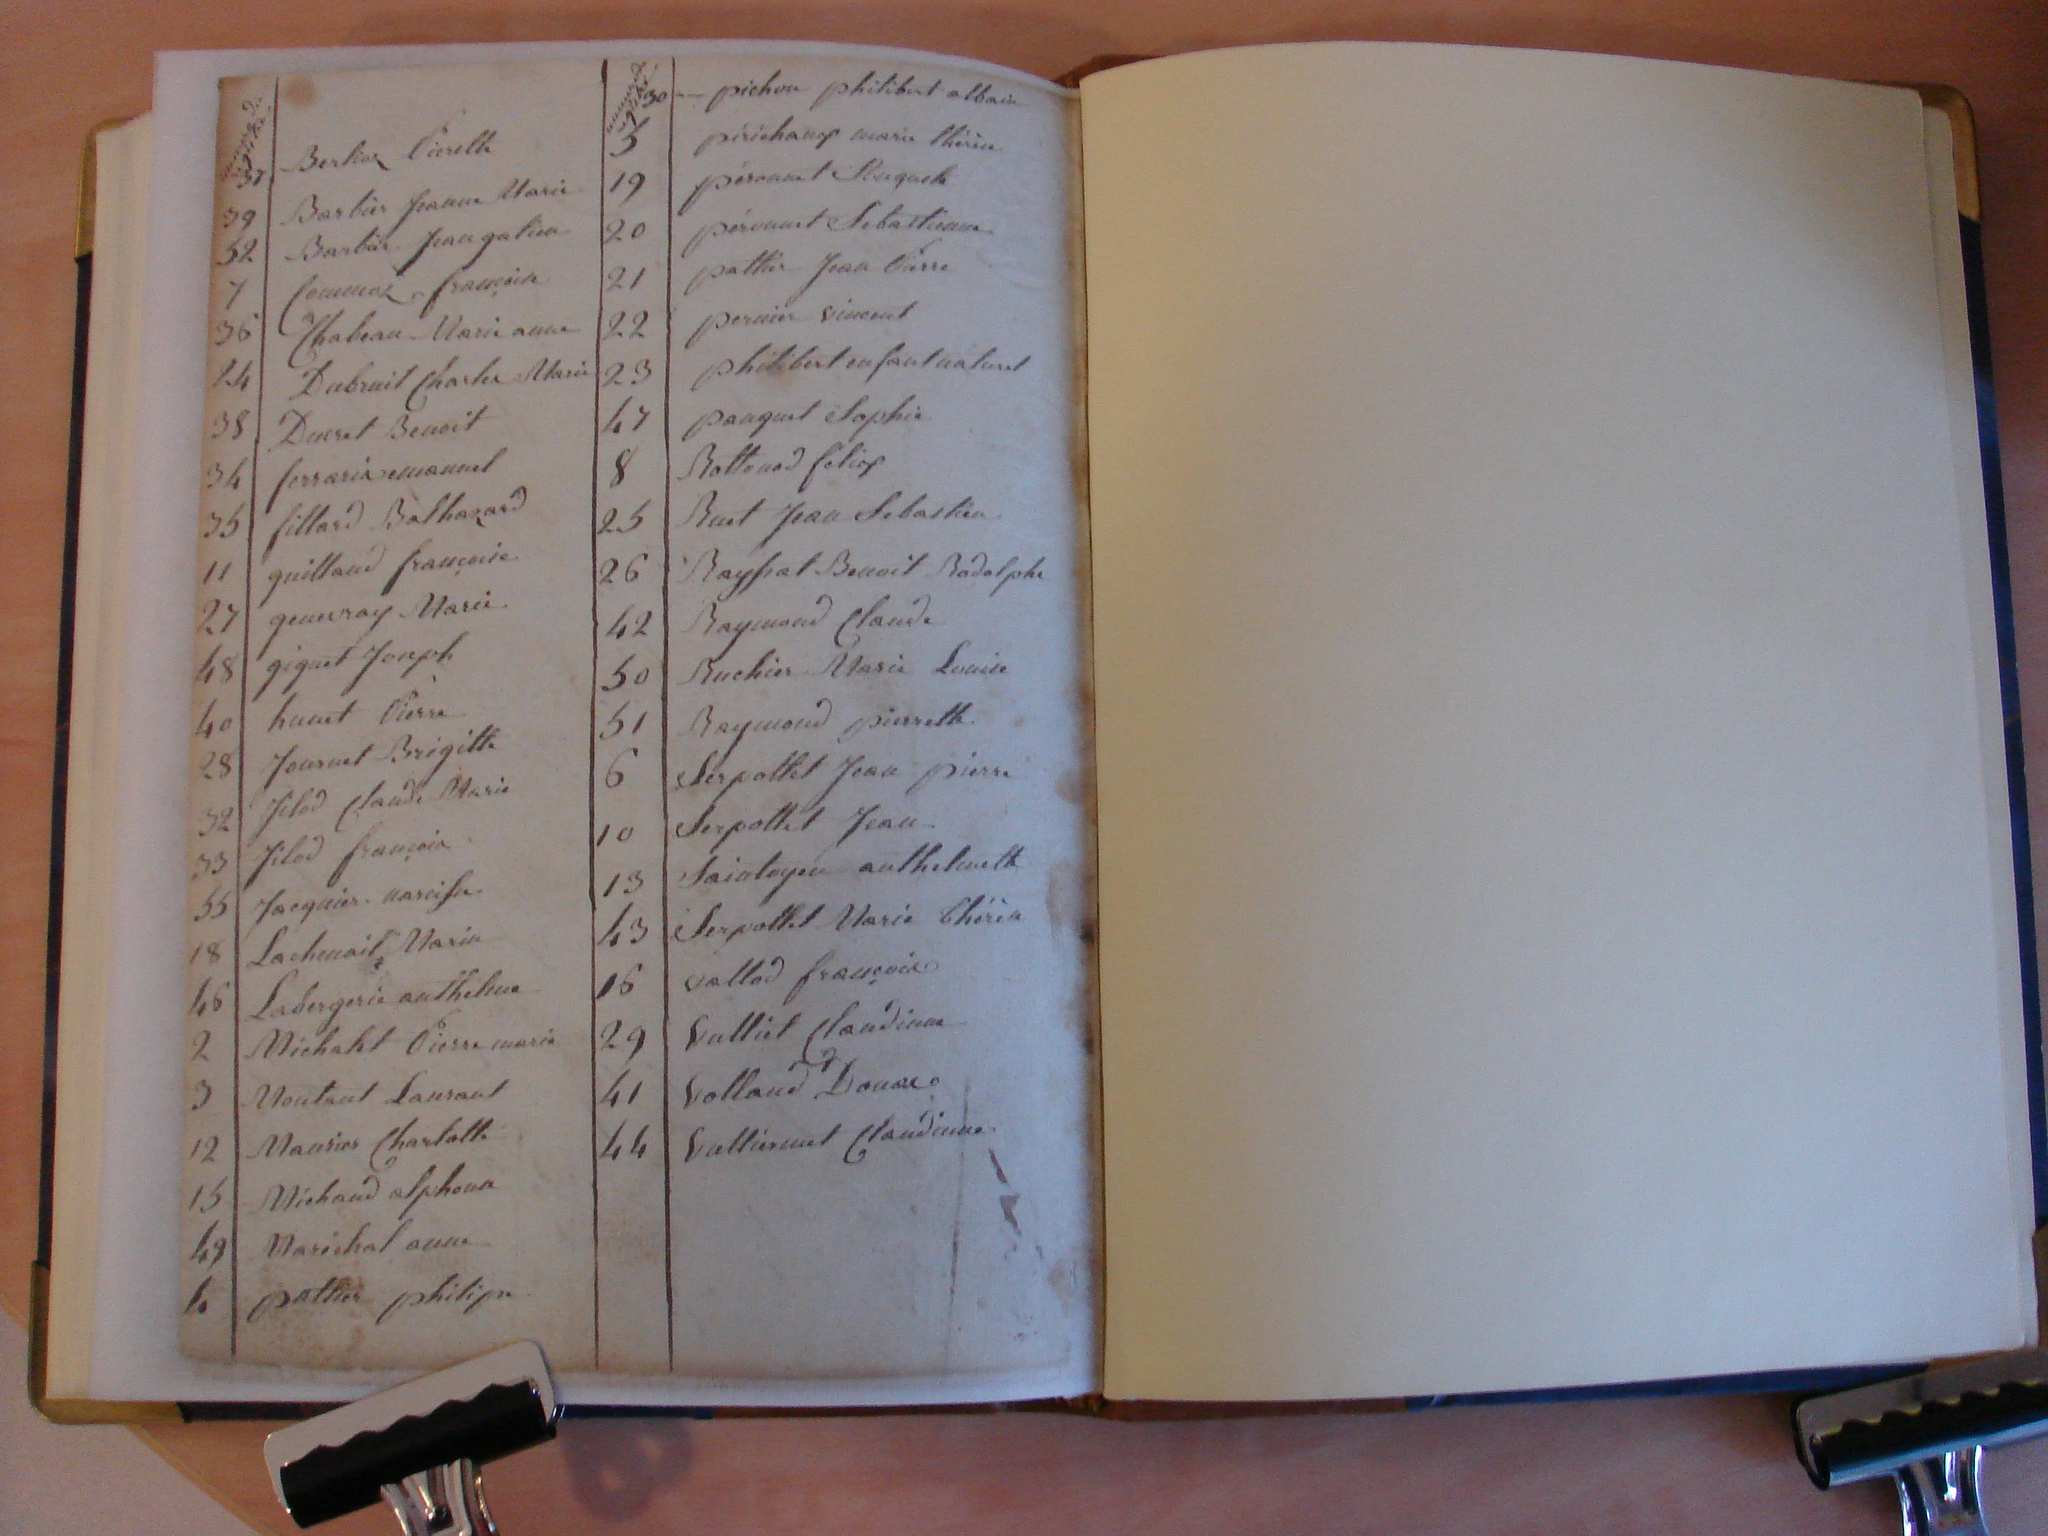 37 Berlioz Pierette
39 Barbier Jeanne Marie
52 Barbier Jean
7 françoise
36 Chabeau Marie anne
24 Dubruit Charles Marie
38 Ducret Benoit
34 ferraria emanuel
35 fillard Balthazard
11 guilland françoise
27 genevray Marie
48 giguet Joseph
40 humet Pierre
28 Journet Brigitte
32 Jilod Claude Marie
33 Jilod françois
55 Jacquier narcisse
18 Marie
46 Labergerie anthelme
2 Michalet Pierre marie
3 Montant Laurant
12 Maurier Charlotte
15 Michaud alphonse
49 Maréchal anne
4 pattier philipe
30 pichon philibert albain
5 marie thérèse
19 péronnet
20 péronnet Sebastienne
21 pattier Jean Pierre
22 pernier vincent
23 philibert enfant naturel
47 pauquet Sophie
8 Rattoud felix
25 Ruet Jean Sebastien
26 Rayssat Benoit Rodolphe
42 Raymond Claude
50 Ruchier Marie Louise
51 Raymond pierrette
6 Serpollet Jean pierre
10 Serpollet Jean
13 anthelmette
43 Serpollet Marie Thérèse
16 vallod françoise
29 Vulliet Claudine
41 Volland
44 Vulliermet Claudine